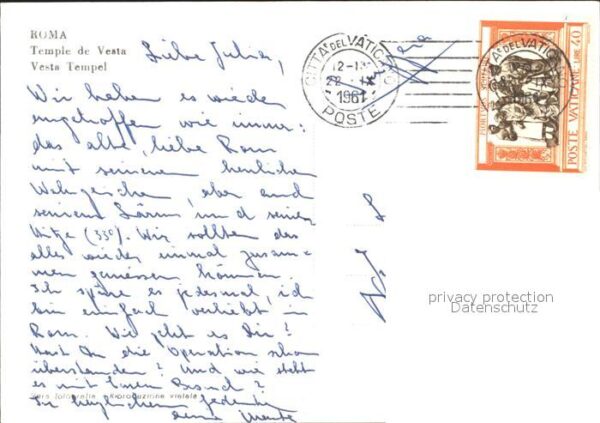 ROMA
Temple de Vesta
Vesta Tempel
Liebe Julia,
Wir haben es wieder
angetroffen wie immer:
das alte, liebe Rom
mit seinem herrlichen
aber auch
seinem Lärm und seiner
Hitze (33°). Wir sollten das
alles wieder einmal zusam=
men geniessen können.
Ich spüre es jedesmal, ich
bin einfach verliebt in
Rom. Wie geht es Dir?
Hast Du die Operation schon
überstanden? Und wie steht
es mit Eurem Besuch?
In herzlichem Gedenken
Deine
Vera fotografia - Riproduzione vietata
CITTÀ DEL VATICANO
POSTE
12-13
22 IX
1961
POSTE VATICANE LIRE 40
privacy protection
Datenschutz